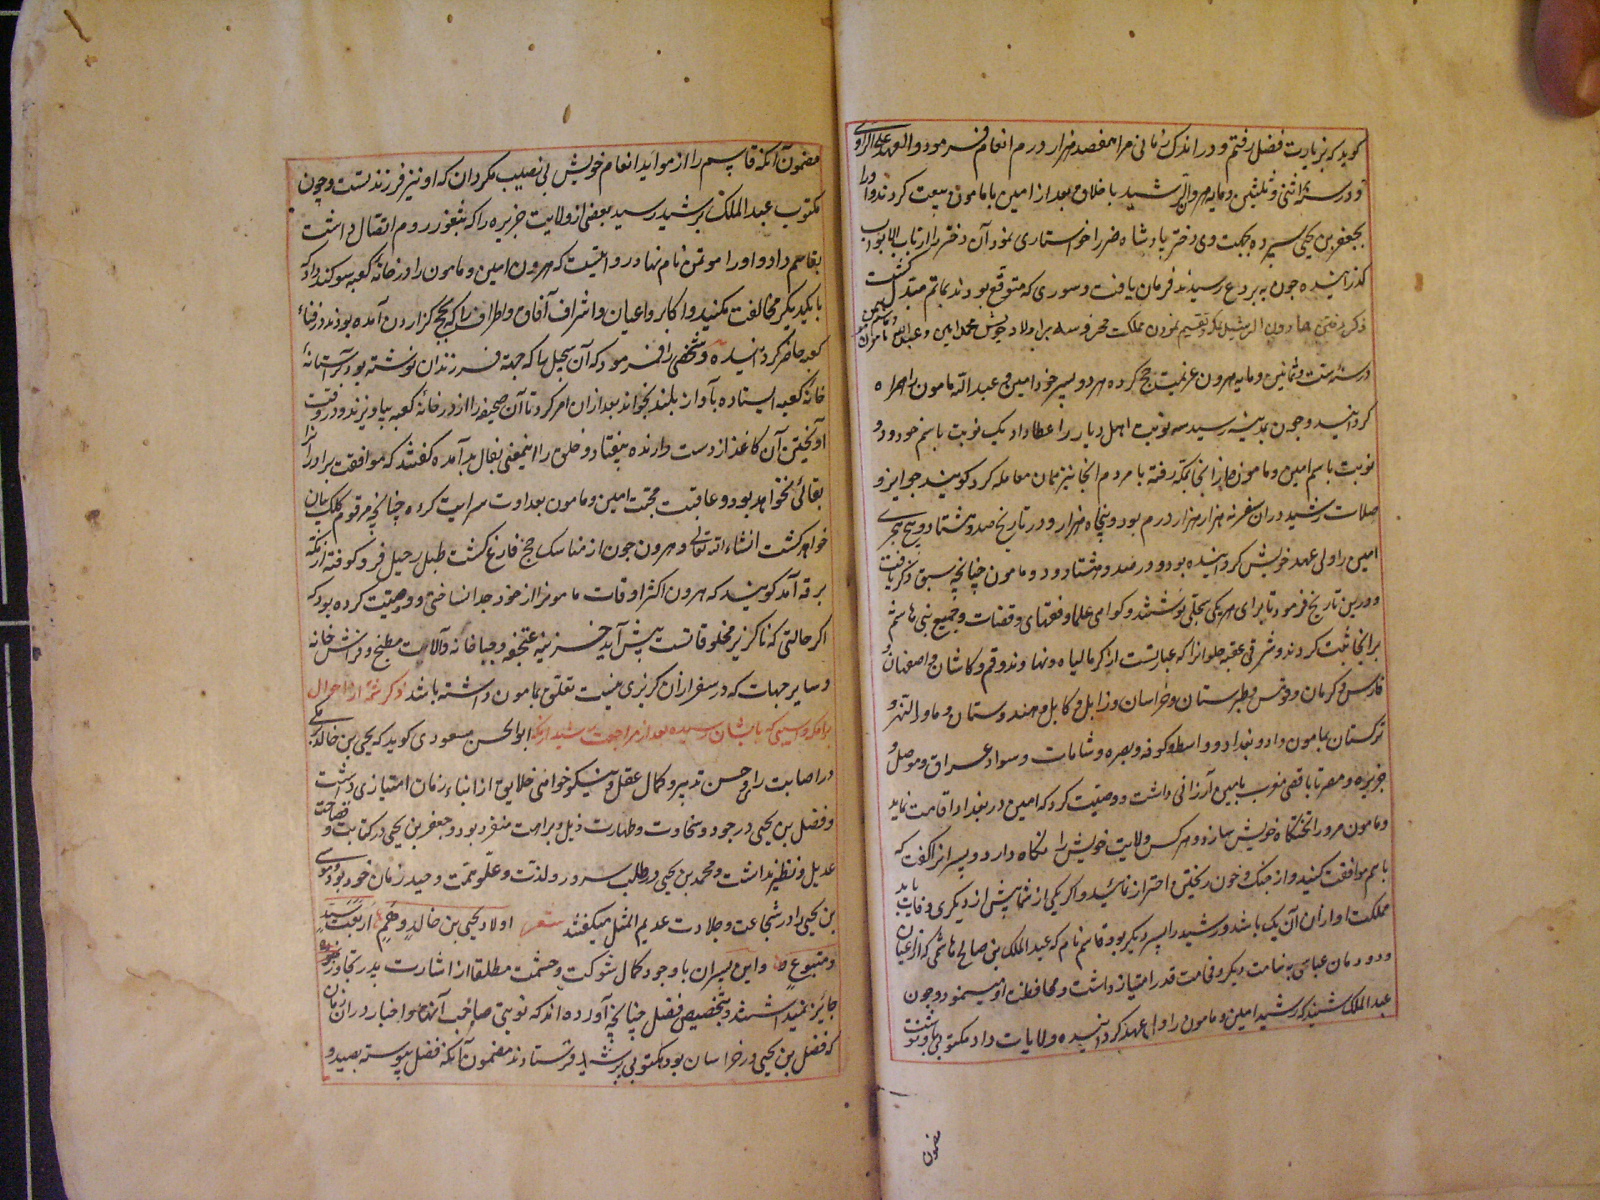 گوید که بزیارت فضل رفتم و در اندک زمانی مرا هفصد هزار درم انعام فرمود والعهدة علی الراوی
و در سنه اثنی و ثمانین و مایه هرون الرشید باخلاق بعد از امین با مامون بیعت کردند و او را
بجعفر بن یحیی سپرده بجهت وی دختر پادشاه خزر را خواستاری نمود آن دختر را از باب الابواب
گذرانیده چون به بردع رسیدند فرمان یافت و سوری که متوقع بودند بماتم مبدل گشت
ذکر رفتن هارون الرشید بمکه و تقسیم نمودن مملکت محروسه بر اولاد خویش محمد امین و عبدالله مامون
در سنه ست و ثمانین و مایه هرون عزیمت حج کرده هر دو پسر خود امین و عبد الله مامون را همراه
گردانید و چون بمدینه رسید سه نوبت اهل دیار را عطا داد یک نوبت باسم خود و دو
نوبت باسم امین و مامون و از انجا بمکه رفته با مردم انجا نیز همان معامله کرد گویند جوایز و
صلات رشید در ان سفر نه هزار هزار درم بود و پنجاه هزار و در تاریخ صد و هشتاد و پنج هجری
امین را ولی عهد خویش گردانیده بود و در صد و هشتاد و دو مامون چنانچه سبق ذکر یافت
و درین تاریخ فرمود تا برای هر یکی سجلی نوشتند و گواهی علما و فقهای و قضات و جمیع بنی هاشم
بر انجا ثبت کردند و شرقی عقبه حلوان را که عبارتست از کرمانشاه و نهاوند و قم و کاشان و اصفهان و
فارس و کرمان و قومس و طبرستان و خراسان و زابل و کابل و هندوستان و ماوراالنهر و
ترکستان بمامون داد و بغداد و واسط و کوفه و بصره و شامات و سواد عراق و موصل و
جزیره و مصر تا باقصی مغرب بامین ارزانی داشت و وصیت کرد که امین در بغداد اقامت نماید
و مامون مرو را تختگاه خویش سازد و هر کس ولایت خویش را نگاه دارد و پسرانرا گفت که
با هم موافقت کنید و از جنگ و خون ریختن احتراز نمائید و اگر یکی از شما پیش از دیگری وفات یابد
مملکت او از آن یک باشد و رشید را پسر دیگر بود قاسم نام که عبد الملک بن صالح هاشمی که از اعیان
دودمان عباسی به نباهت ذکر و فخامت قدر امتیاز داشت و محافظت او مینمود و چون
عبد الملک شنید که رشید امین و مامون را ولی عهد گردانیده ولایات داد مکتوبی باو نوشت
مضمون
مضمون آنکه قاسم را از مواید انعام خویش بی نصیب مگردان که او نیز فرزند تست و چون
مکتوب عبد الملک برشید رسید بعضی از ولایت جزیره را که بثغور روم اتصال داشت
بقاسم داد و او را موتمن نام نهاد و روایتیست که هرون امین و مامون را در خانه کعبه سوکند داد که
با یکدیگر مخالفت نکنید و اکابر و اعیان و اشراف آفاق و اطراف را که بحج گزاردن آمده بودند در فناء
کعبه حاضر کردانیده و شخصی را فرمود که آن سجل ها که جهة فرزندان نوشته بود بر آستانه
خانه کعبه ایستاده بآواز بلند بخواند بعد از ان امر کرد تا آن صحیفه را از در خانه کعبه بیاویزند و در وقت
آویختن آن کاغذ از دست دارنده بیفتاد و خلق را اینمعنی بفال بد آمده گفتند که موافقت برادرانرا
بقائی نخواهد بود و عاقبت محبت امین و مامون بعداوت سرایت کرده چنانچه مرقوم کلک بیان
خواهد گشت انشاء الله تعالی و هرون چون از مناسک حج فارغ گشت طبل رحیل فرو کوفته از مکه
برقه آمد گویند که هرون اکثر اوقات مامونرا از خود جدا نساختی و وصیت کرده بود که
اگر حالتی که ناگزیر مخلوقاتست پیش آید خزینه و جباخانه و آلات مطبخ و فراش خانه
و سایر جهات که در سفر از ان گزیری نیست تعلق بمامون داشته باشد ذکر شمه از احوال
برامکه و آسیبی که بایشان رسیده بعد از مراجعت رشید از مکه ابوالحسن مسعودی گوید که یحیی بن خالد برمکی
در اصابت رای و حسن تدبیر و کمال عقل و نیکو خواهی خلایق از ابناء زمان امتیازی داشت
و فضل بن یحیی در جود و سخاوت و طهارت ذیل و براعت منفرد بود و جعفر بن یحیی در کتابت و فصاحت
عدیل و نظیر نداشت و محمد بن یحیی در طلب سرور و لذت و علو همت وحید زمان خود بود و موسی
بن یحیی را در شجاعت و جلادت عدیم المثل میگفتند شعر اولاد یحیی بن خالد و هم اربعة سید
و متبوع و این پسران با وجود کمال شوکت و حشمت مطلقا از اشارت پدر تجاوز
جایز نمیداشتند بتخصیص فضل چنانچه آورده اند که نوبتی صاحب اخبار در ان زمان
که فضل بن یحیی در خراسان بود مکتوبی برشید فرستادند مضمون آنکه فضل پیوسته بصید و